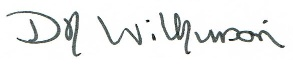 DM Wilkinson